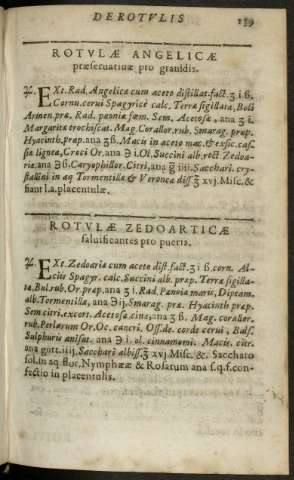 DE ROTVLIS 189
ROTVLÆ ANGELICÆ
præseruatiuæ pro grauidis.
EXt. Rad. Angelicæ cum aceto distillat. fact. ʒ i. ß.
Cornu. cerui Spagyricè calc. Terræ sigillatæ, Boli
Armen. præ. Rad. peoniæ fæm. Sem. Acetosæ, ana ʒ i.
Margaritæ trochiscat. Mag. Corallor. rub. Smarag. præp.
Hyacinth. præp. ana ʒß. Macis in aceto mac. & exsic. cas-
siæ ligneæ, Croci Or. ana ℈ i. Ol. Succini alb. rect Zedoa-
riæ. ana ℈ß. Caryophillor. Citri, ana iiij. Sacchari. cry-
stallini in aq Tormentillæ & Veronicæ diss. ℥ xvj. Misc. &
fiant l. a. placentulæ.
ROTVLÆ ZEDOARTICÆ
saluificantes pro pueris.
EXt. Zedoariæ cum aceto dist. fact. ʒ i ß. corn. Al-
cis Spagyr. calc. Succini alb. præp. Terræ sigilla-
tæ, Bol. rub. Or. præp. ana ʒ i. Rad. Pæoniæ maris, Diptam.
alb. Tormentillæ, ana ℈ ij. Smarag. præ. Hyacinth. præp.
Sem citri. excort. Acetosæ. cinæ, ana ʒ ß. Mag. corallor.
rub. Perlarum Or. Oc. cancri, Oss. de. corde cerui, Bals.
Sulphuris anisat. ana ℈ i. ol. cinnamomi. Macis. citr.
ana gutt. iiij. Sacchari albiss. ℥ xvj Misc. &. Saccharo
sol. in aq. flor. Nymphææ & Rosarum ana s. q. f. con-
fectio in placentulis.